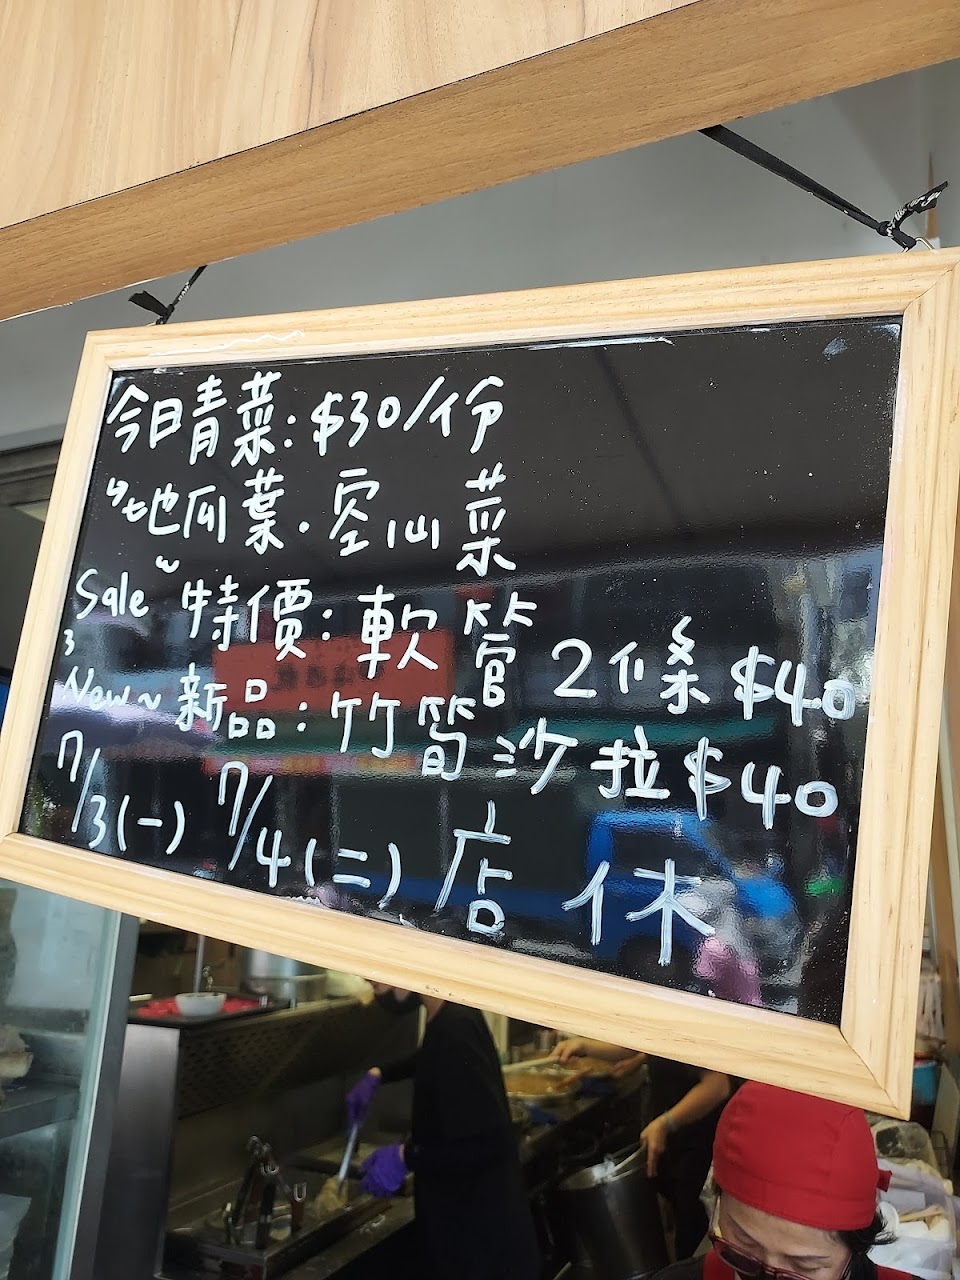 今日青菜:$30/份
地瓜葉.空心菜
Sale 特價:軟管2條$40
New~新品:竹筍沙拉$40
7/3(一) 7/4(二)店休